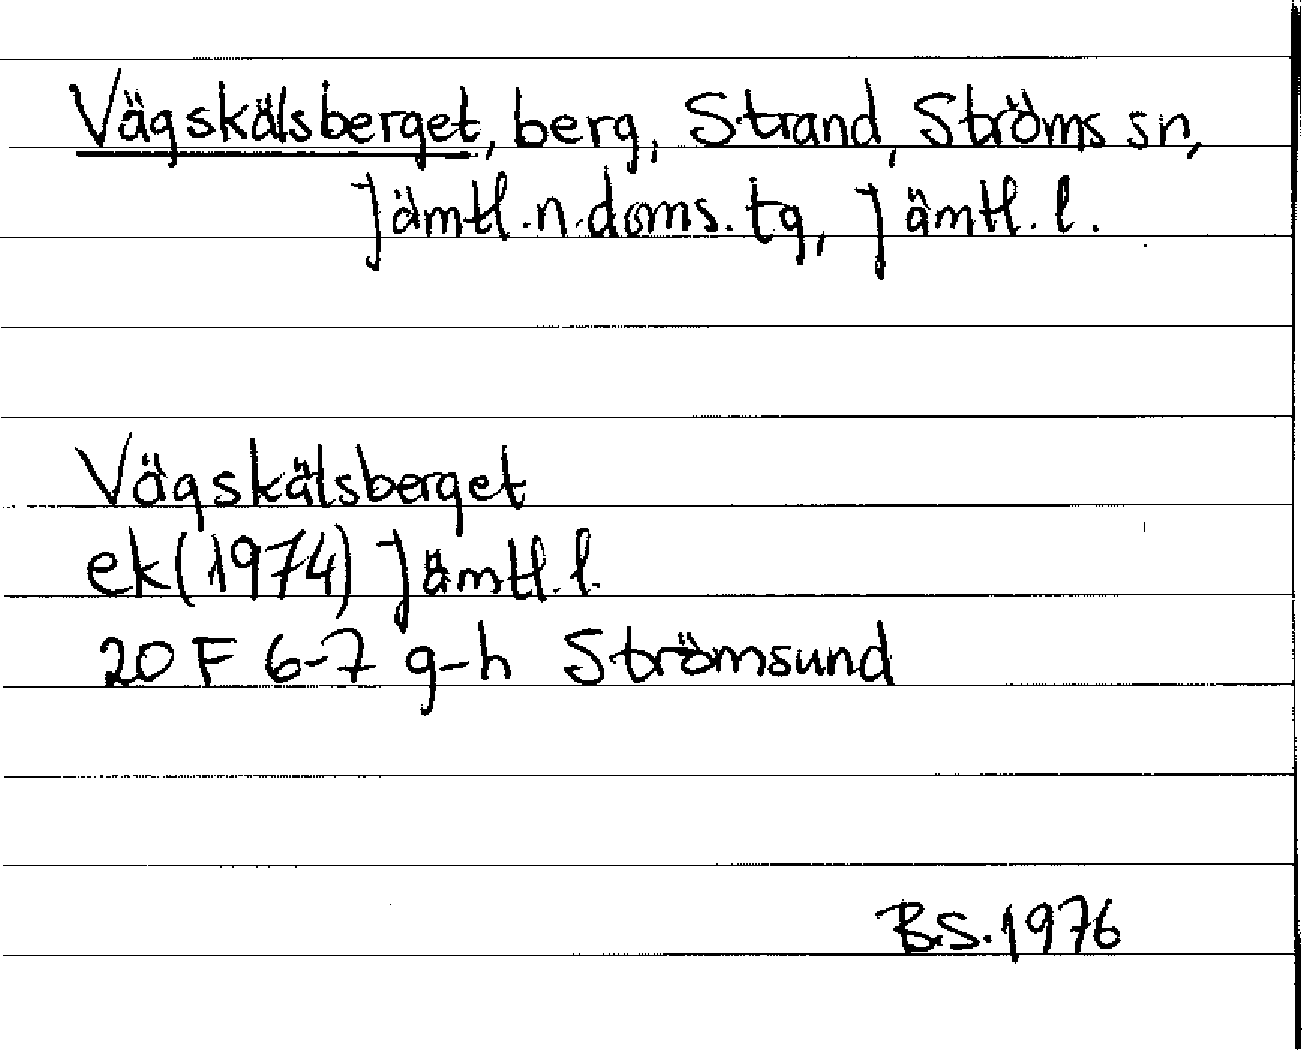 Vägskälsberget, berg, Strand, Ströms sn,
Jämtl. n. doms. tg, Jämtl. l.
Vägskälsberget
ek (1974) Jämtl. l.
20 F 6-7 g-h Strömsund
B.S. 1976